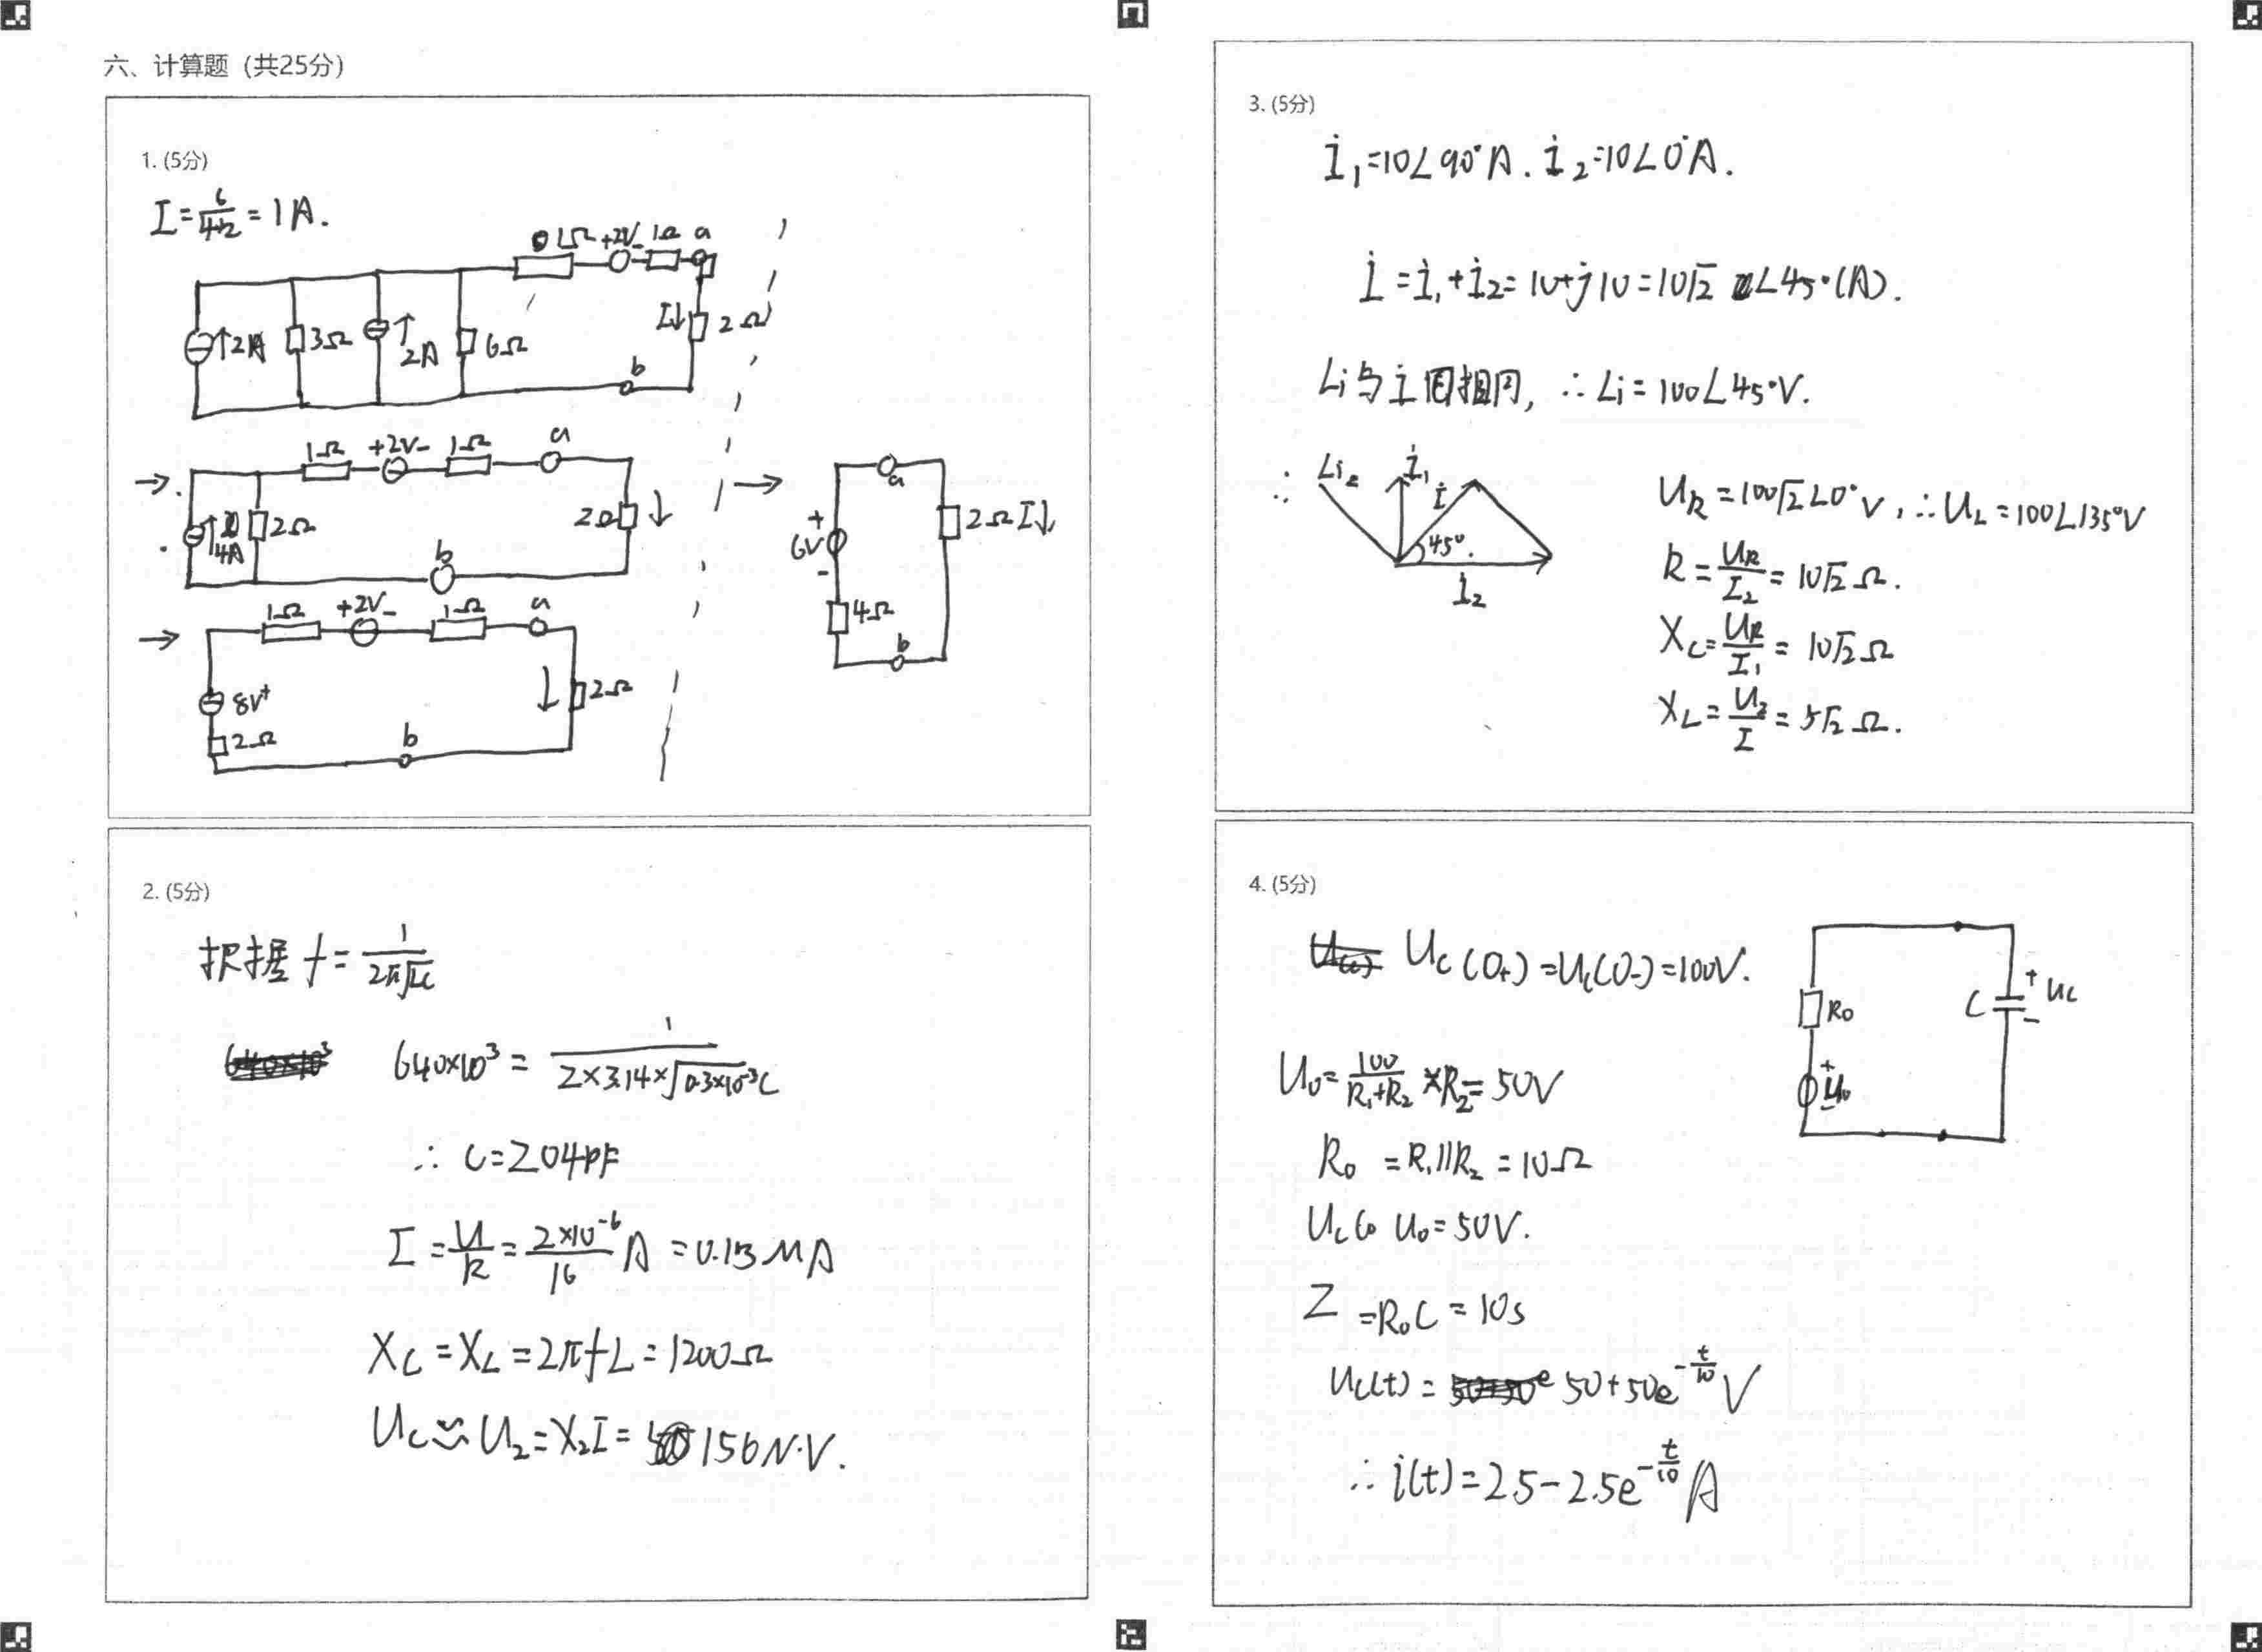 六、计算题（共25分）
1. (5分)
I=6/(4+2)=1A.
1Ω +2V- 1Ω a
↑2A 3Ω ↑2A 6Ω I↓ 2Ω
b
→ 1Ω +2V- 1Ω a
↑4A 2Ω 2Ω ↓
b
→ 1Ω +2V- 1Ω a
8V+ ↓ 2Ω
2Ω b
→ a
+ 6V - 2Ω I↓
4Ω
b
2. (5分)
f=1/(2π√LC)
640×10³=1/(2×3.14×√(0.3×10⁻³C))
∴ C=204PF
I=U/R=2×10⁻⁶/16 A=0.13MA
X_C=X_L=2πfL=1200Ω
U_C≈U_2=X_2I=156N·V.
3. (5分)
İ₁=10∠90°A. İ₂=10∠0°A.
İ=İ₁+İ₂=10+j10=10√2∠45°(A).
Li与İ同相同, ∴Li=100∠45°V.
∴ Li₂ İ₁ İ
45°.
İ₂
U_R=100√2∠0°V, ∴U_L=100∠135°V
R=U_R/I₂=10√2Ω.
X_C=U_R/I₁=10√2Ω
X_L=U₂/I=5√2Ω.
4. (5分)
U_C(0+)=U_C(0-)=100V.
R₀ C + U_C -
+ U₀ -
U₀=100/(R₁+R₂)×R₂=50V
R₀=R₁//R₂=10Ω
U₀=50V.
Z=R₀C=10s
U_C(t)=50+50e^(-t/10) V
∴i(t)=2.5-2.5e^(-t/10) A